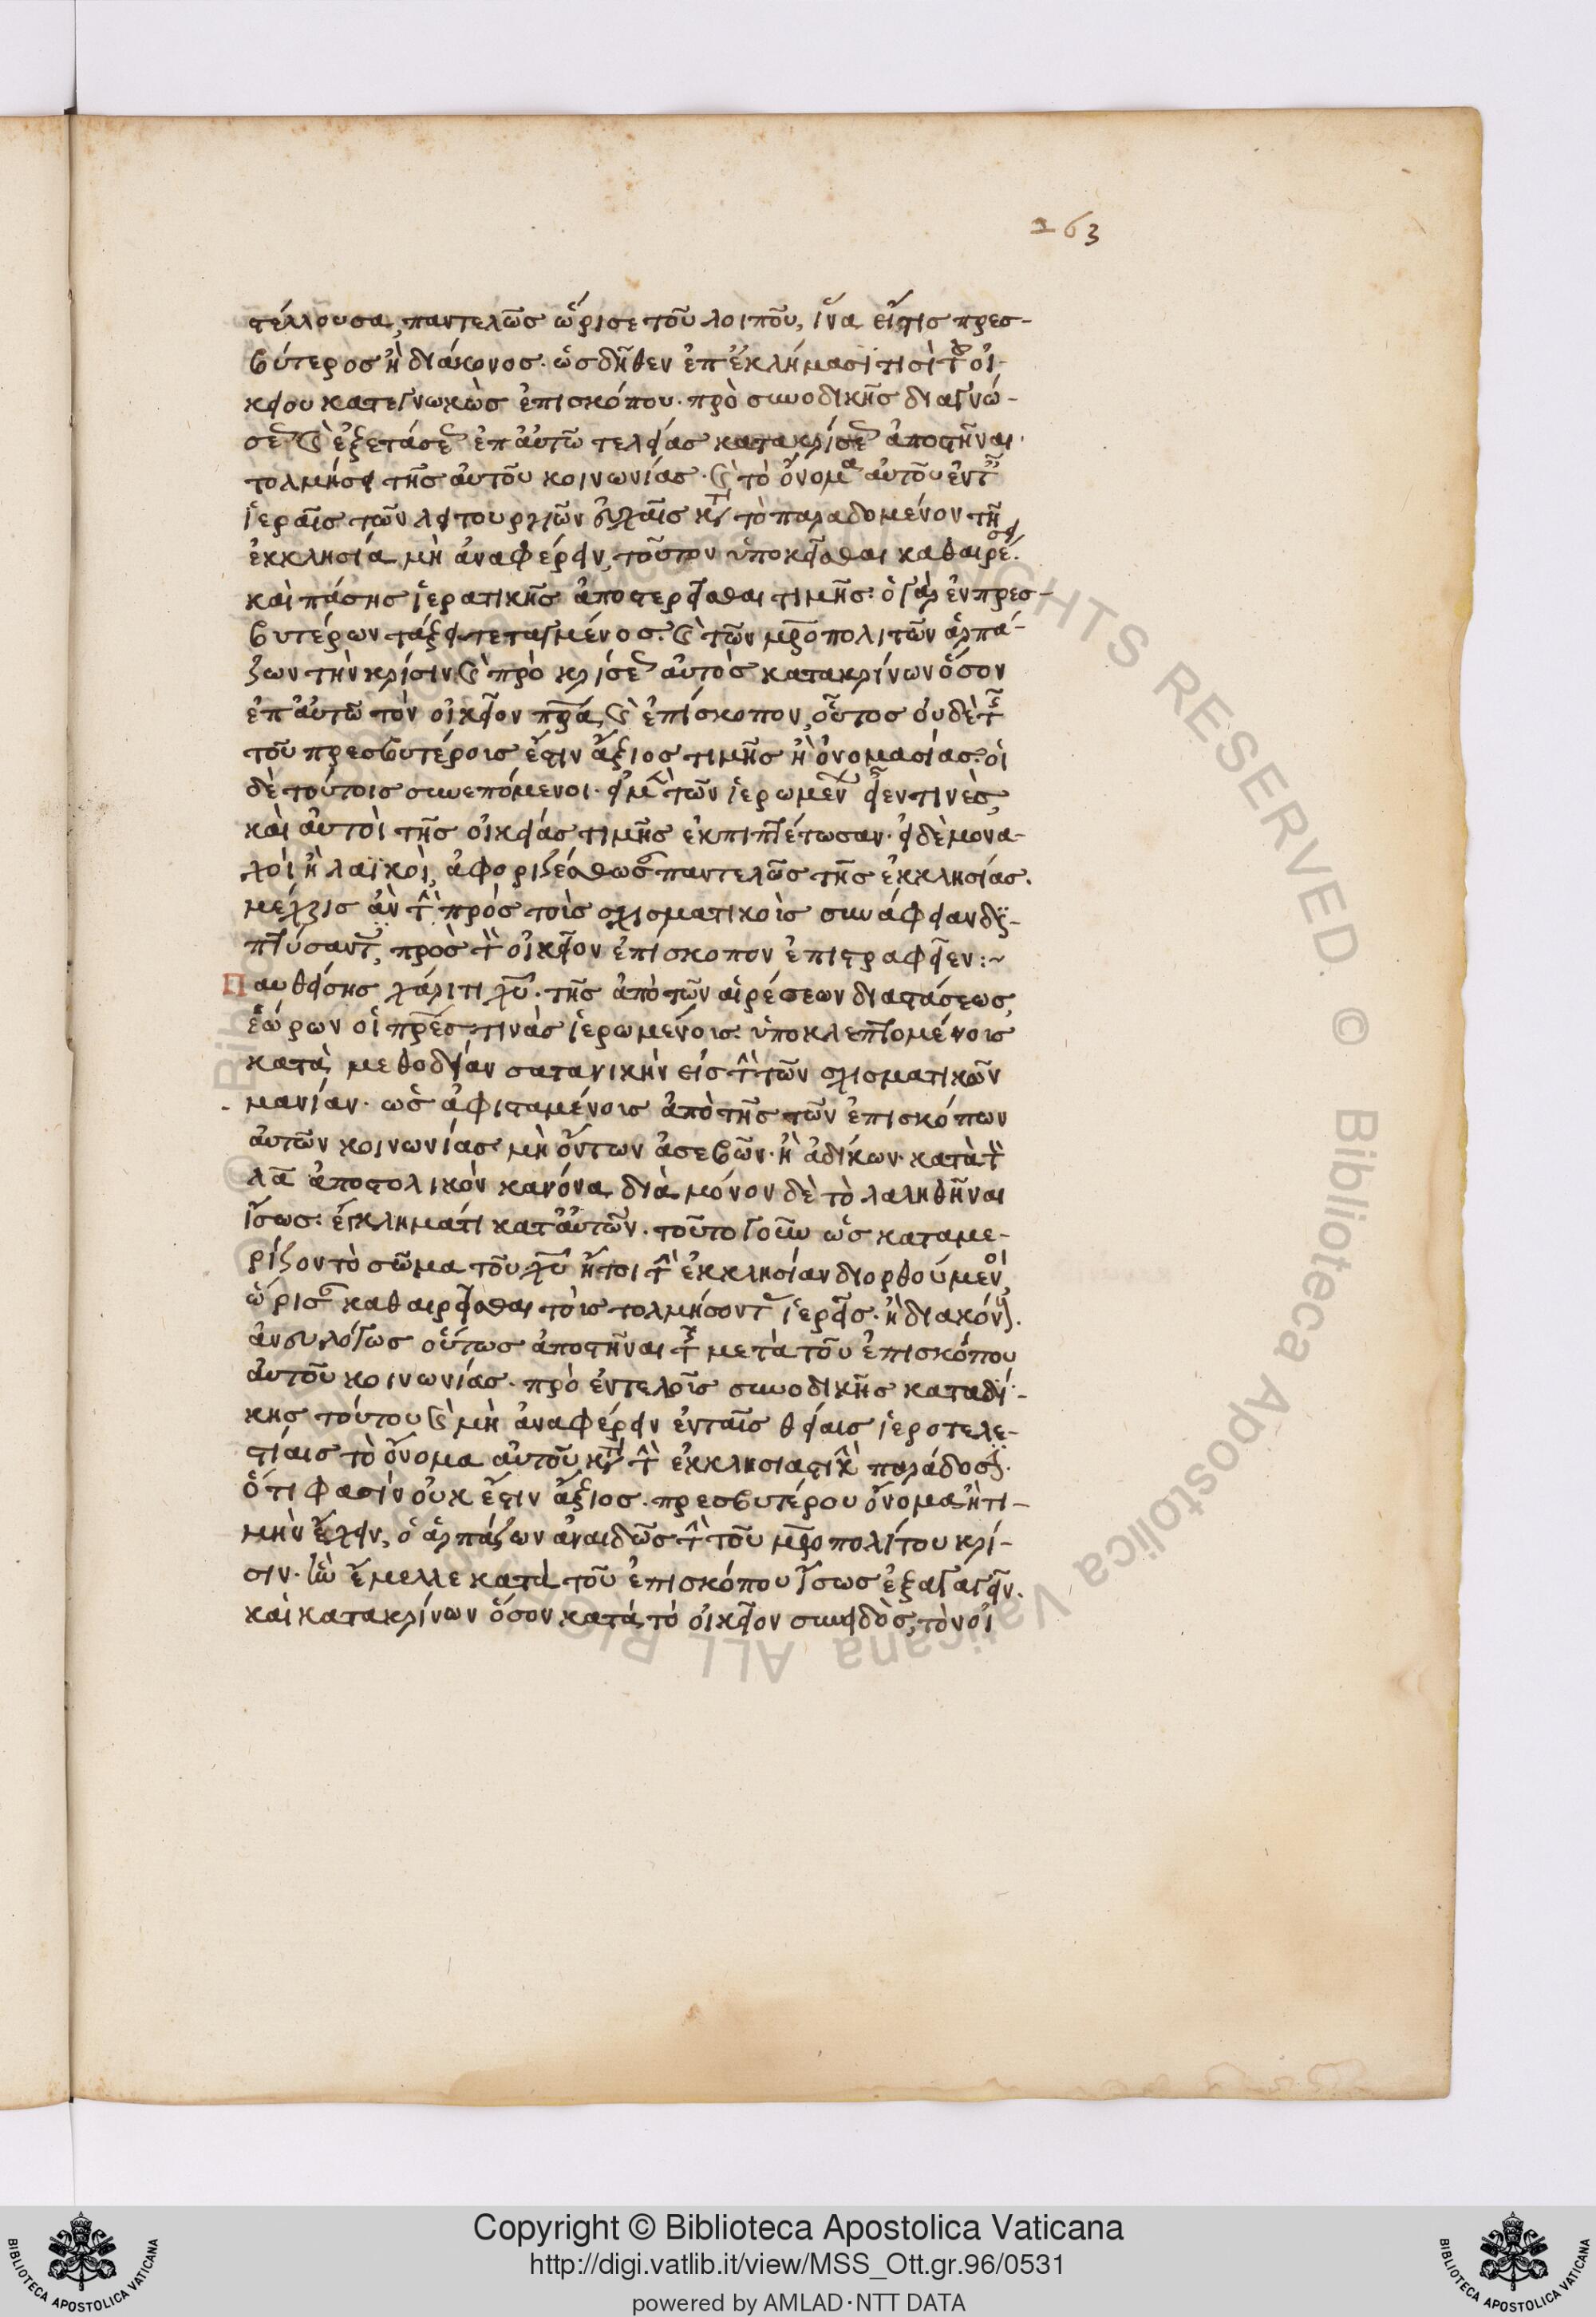 263
τέλλουσα, παντελῶς ὥρισε τοῦ λοιποῦ, ἵνα εἴ τις πρεσ-
βύτερος ἢ διάκονος· ὡς δῆθεν ἐπ' ἐγκλήμασί τισι τοῦ οἰ-
κείου κατεγνωκὼς ἐπισκόπου· πρὸ συνοδικῆς διαγνώ-
σεως καὶ ἐξετάσεως ἐπ' αὐτῶ τελείας κατακρίσεως ἀποστῆναι
τολμήσει τῆς αὐτοῦ κοινωνίας· καὶ τὸ ὄνομα αὐτοῦ ἐν ταῖς
ἱεραῖς τῶν λειτουργιῶν εὐχαῖς κατὰ τὸ παραδομένον τῆ
ἐκκλησία μὴ ἀναφέρειν, τοῦτον ὑποκεῖσθαι καθαιρέσει·
καὶ πάσης ἱερατικῆς ἀποστερεῖσθαι τιμῆς· ὁ γὰρ ἐν πρεσ-
βυτέρων τάξει τεταγμένος· καὶ τῶν μητροπολιτῶν ἁρπά-
ζων τὴν κρίσιν καὶ πρὸ κρίσεως αὐτὸς κατακρίνων ὅσον
ἐπ' αὐτῶ τὸν οἰκεῖον πατέρα, καὶ ἐπίσκοπον, οὗτος οὐδὲ τῆς
τοῦ πρεσβυτέροις ἐστιν ἄξιος τιμῆς ἢ ὀνομασίας· οἱ
δὲ τούτοις συνεπόμενοι· εἰ μὲν τῶν ἱερωμένων εἶεν τινὲς,
καὶ αὐτοὶ τῆς οἰκείας τιμῆς ἐκπιπτέτωσαν· εἰ δὲ μονα-
χοὶ ἢ λαϊκοὶ, ἀφοριζέσθωσαν παντελῶς τῆς ἐκκλησίας.
μέχρις ἂν τὴν πρὸς τοὶς σχισματικοὶς συνάφειαν δια-
πτύσαντες, πρὸς τὸν οἰκεῖον ἐπισκοπον ἐπιστραφεῖεν :~
Παυθείσης χάριτι χυ· τῆς ἀπὸ τῶν αἱρέσεων διαστάσεως,
ἑώρων οἱ πρες τινὰς ἱερωμένοις ὑποκλεπτομένοις
κατὰ μεθοδείαν σατανικὴν εἰς τὴν τῶν σχισματικῶν
μανίαν· ὡς ἀφισταμένοις ἀπὸ τῆς τῶν ἐπισκόπων
αὐτῶν κοινωνίας μὴ ὄντων ἀσεβῶν· ἢ ἀδίκων· κατὰ τὸν
λα ἀποστολικὸν κανόνα διὰ μόνον δὲ τὸ λαληθῆναι
ἴσως· ἐγκληματι κατ' αὐτῶν· τοῦτο γοῦν ὡς καταμε-
ρίζον τὸ σῶμα τοῦ χυ ἤτοι τὴν ἐκκλησίαν διορθούμενοι
ὥρισαν καθαιρεῖσθαι τὸις τολμήσοντας ἱερεῖς· ἢ διακόνους.
ἀνευλόγως οὕτως ἀποστῆναι τῆς μετὰ τοῦ ἐπισκόπου
αὐτοῦ κοινωνίας· πρὸ ἐντελοῖς συνοδικῆς καταδί-
κης τούτου καὶ μὴ ἀναφέρειν ἐν ταῖς θείαις ἱεροτελε-
στίαις τὸ ὄνομα αὐτοῦ κατὰ τὴν ἐκκλησιαστικὴν παράδοσιν.
ὅτι φασὶν οὐκ ἔστιν ἄξιος· πρεσβυτέρου ὄνομα ἢ τι-
μὴν ἔχειν, ὁ ἁρπάζων ἀναιδῶς τὴν τοῦ μητροπολίτου κρί-
σιν· ἣν ἔμελλε κατὰ τοῦ ἐπισκόπου ἴσως ἐξαγαγεῖν.
καὶ κατακρίνων ὅσον κατὰ τὸ οἰκεῖον συνειδὸς, τὸν οἰ